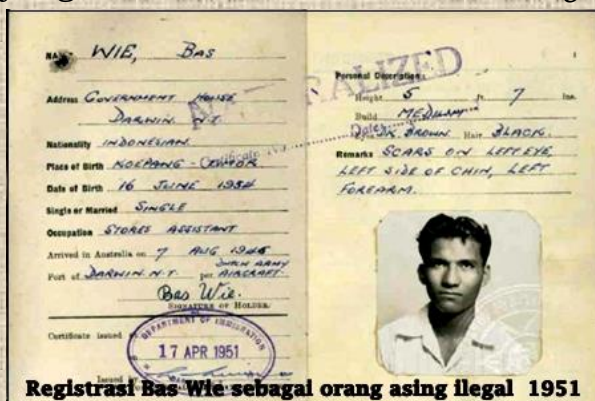 NAME WIE, BAS
Address GOVERNMENT HOUSE
DARWIN. N.T.
Nationality INDONESIAN.
Place of Birth KOEPANG -
Date of Birth 16 JUNE
Single or Married SINGLE
Occupation STORES ASSISTANT
Arrived in Australia on 7 AUG 1946
Port of DARWIN. N.T. per DUTCH ARMY
AIRCRAFT.
Bas Wie.
SIGNATURE OF HOLDER.
Certificate issued
DEPARTMENT OF IMMIGRATION
17 APR 1951
Issued by
1
Personal Description:
Height 5 ft. 7 Ins.
Build MEDIUM
DK. BROWN Hair BLACK.
Remarks SCARS ON LEFT EYE,
LEFT SIDE OF CHIN, LEFT
FOREARM.
Certificate No.
Dated
Registrasi Bas Wie sebagai orang asing ilegal 1951